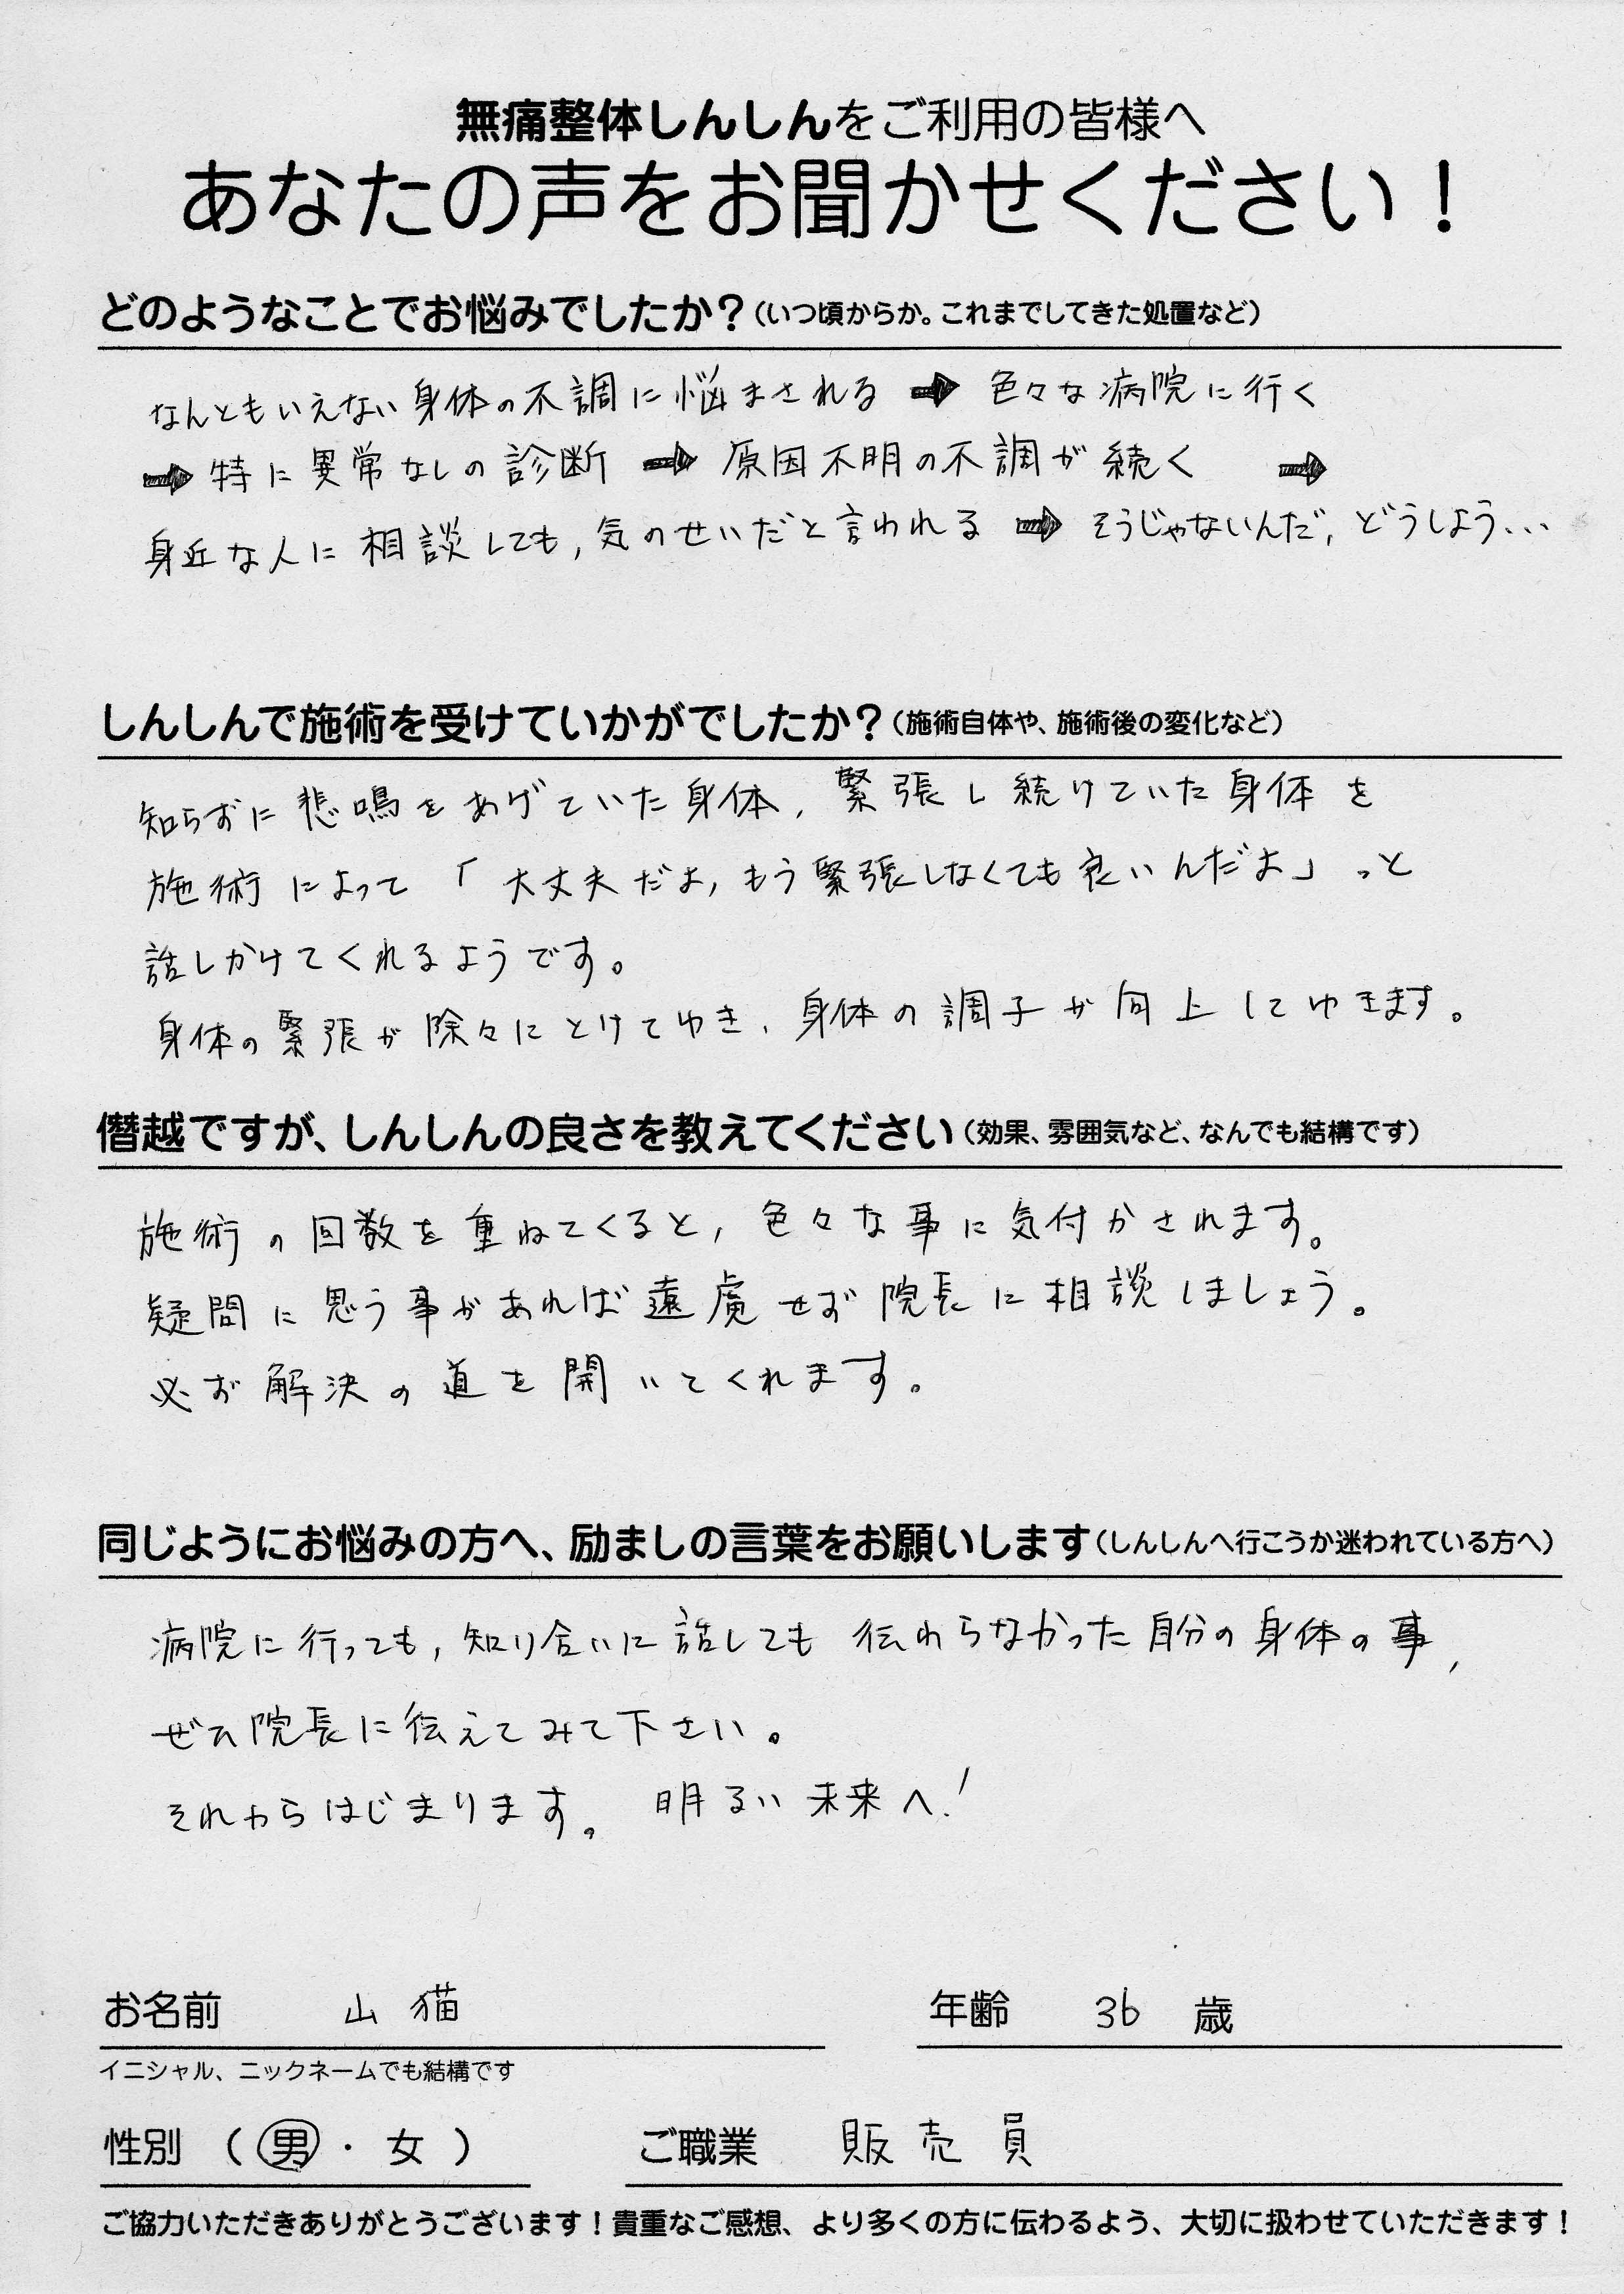 無痛整体しんしんをご利用の皆様へ
あなたの声をお聞かせください！
どのようなことでお悩みでしたか？（いつ頃からか。これまでしてきた処置など）
なんともいえない身体の不調に悩まされる ➡ 色々な病院に行く
➡ 特に異常なしの診断 ➡ 原因不明の不調が続く ➡
身近な人に相談しても，気のせいだと言われる ➡ そうじゃないんだ，どうしよう…
しんしんで施術を受けていかがでしたか？（施術自体や、施術後の変化など）
知らずに悲鳴をあげていた身体，緊張し続けていた身体を
施術によって「大丈夫だよ，もう緊張しなくても良いんだよ」っと
話しかけてくれるようです。
身体の緊張が除々にとけてゆき，身体の調子が向上してゆきます。
僭越ですが、しんしんの良さを教えてください（効果、雰囲気など、なんでも結構です）
施術の回数を重ねてくると，色々な事に気付かされます。
疑問に思う事があれば遠慮せず院長に相談しましょう。
必ず解決の道を開いてくれます。
同じようにお悩みの方へ、励ましの言葉をお願いします（しんしんへ行こうか迷われている方へ）
病院に行っても，知り合いに話しても伝わらなかった自分の身体の事，
ぜひ院長に伝えてみて下さい。
それからはじまります。明るい未来へ！
お名前 山猫 年齢 36 歳
イニシャル、ニックネームでも結構です
性別 （ 男 ・ 女 ） ご職業 販売員
ご協力いただきありがとうございます！貴重なご感想、より多くの方に伝わるよう、大切に扱わせていただきます！